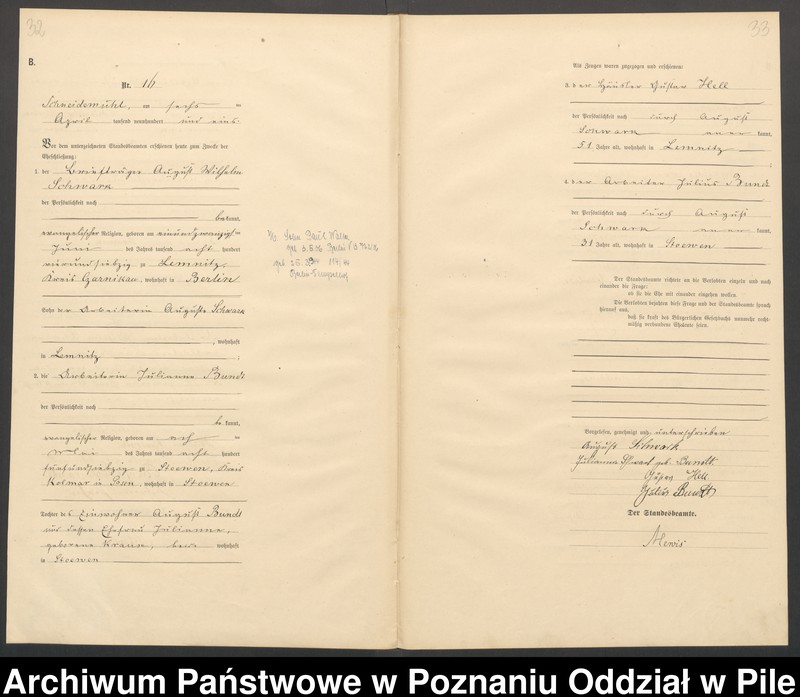 32
B.
Nr. 16
Schneidemühl, am sechs
April tausend neunhundert und eins.
Vor dem unterzeichneten Standesbeamten erschienen heute zum Zwecke der
Eheschließung:
1. der Briefträger August Wilhelm
Schwark
der Persönlichkeit nach
bekannt,
evangelischer Religion, geboren am einundzwanzigsten
Juni des Jahres tausend acht hundert
vierundsiebzig zu Lemnitz,
Kreis Czarnikau, wohnhaft in Berlin
Sohn der Arbeiterin Auguste Schwark
, wohnhaft
in Lemnitz ;
2. die Arbeiterin Julianne Bundt
der Persönlichkeit nach
be kannt,
evangelischer Religion, geboren am
Mai des Jahres tausend acht hundert
fünfundsiebzig zu Stoewen, Kreis
Kolmar i Posen, wohnhaft in Stoewen
Tochter des Einwohner August Bundt
und dessen Ehefrau Julianne,
geborene Krause, wohnhaft
in Stoewen
33
Als Zeugen waren zugezogen und erschienen:
3. der Häusler Gustav Hell
der Persönlichkeit nach durch August
Schwark aner kannt,
51 Jahre alt, wohnhaft in Lemnitz ;
4. der Arbeiter Julius Bundt
der Persönlichkeit nach durch August
Schwark aner kannt,
31 Jahre alt, wohnhaft in Stoewen
Der Standesbeamte richtete an die Verlobten einzeln und nach
einander die Frage:
ob sie die Ehe mit einander eingehen wollen.
Die Verlobten bejahten diese Frage und der Standesbeamte sprach
hierauf aus,
daß sie kraft des Bürgerlichen Gesetzbuchs nunmehr recht-
mäßig verbundene Eheleute seien.
Vorgelesen, genehmigt und unterschrieben
August Schwark
Julianna Schwark geb. Bundt.
Gustav Hell
Julius Bundt
Der Standesbeamte.
Mewis
Archiwum Państwowe w Poznaniu Oddział w Pile